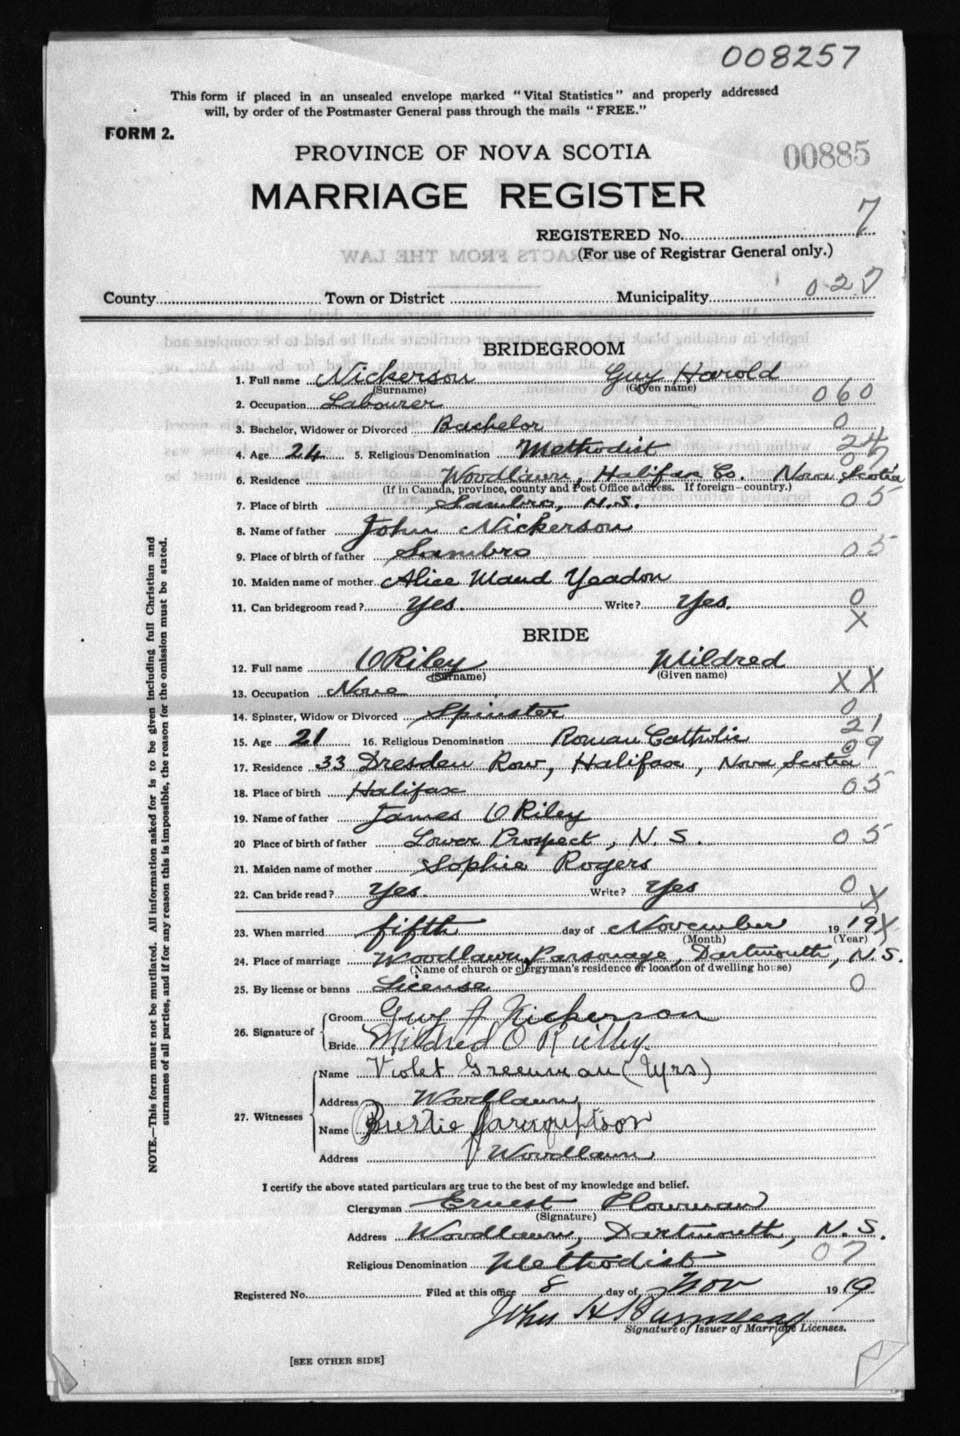 008257
This form if placed in an unsealed envelope marked "Vital Statistics" and properly addressed
will, by order of the Postmaster General pass through the mails "FREE."
FORM 2.
PROVINCE OF NOVA SCOTIA
00885
MARRIAGE REGISTER
REGISTERED No. 7
(For use of Registrar General only.)
County Town or District Municipality 027
BRIDEGROOM
1. Full name Nickerson Guy Harold
(Surname) (Given name)
2. Occupation Labourer 060
3. Bachelor, Widower or Divorced Bachelor 0
4. Age 24 5. Religious Denomination Methodist 24
07
6. Residence Woodlawn, Halifax Co. Nova Scotia
(If in Canada, province, county and Post Office address. If foreign—country.)
7. Place of birth Sambro, N.S. 05
8. Name of father John Nickerson
9. Place of birth of father Sambro 05
10. Maiden name of mother Alice Maud Yeadon
11. Can bridegroom read? Yes. Write? Yes. 0
X
BRIDE
12. Full name O'Riley Mildred
(Surname) (Given name)
13. Occupation None XX
14. Spinster, Widow or Divorced Spinster 0
15. Age 21 16. Religious Denomination Roman Catholic 21
09
17. Residence 33 Dresden Row, Halifax, Nova Scotia
18. Place of birth Halifax 05
19. Name of father James O'Riley
20 Place of birth of father Lower Prospect, N.S. 05
21. Maiden name of mother Sophie Rogers
22. Can bride read? Yes. Write? Yes 0
X
23. When married fifth day of November 19 19 X
(Month) (Year)
24. Place of marriage Woodlawn Parsonage, Dartmouth, N.S.
(Name of church or clergyman's residence or location of dwelling house)
25. By license or banns License 0
26. Signature of Groom Guy H Nickerson
Bride Mildred O Rielly.
27. Witnesses Name Violet Greenman (Mrs)
Address Woodlawn
Name Bertie Farquharson
Address Woodlawn
I certify the above stated particulars are true to the best of my knowledge and belief.
Clergyman Ernest Plowman
(Signature)
Address Woodlawn, Dartmouth, N.S.
Religious Denomination Methodist 07
Registered No. Filed at this office 8 day of Nov 19 19
John H
Signature of Issuer of Marriage Licenses.
[SEE OTHER SIDE]
NOTE.—This form must not be mutilated. All information asked for is to be given including full Christian and
surnames of all parties, and if for any reason this is impossible, the reason for the omission must be stated.